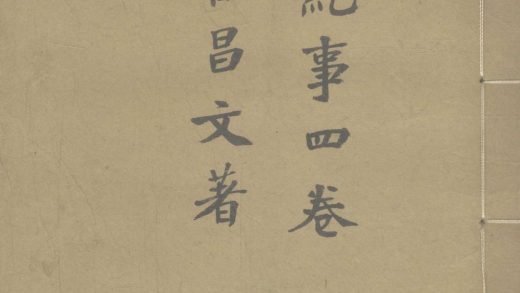 紀事四卷
昌文著